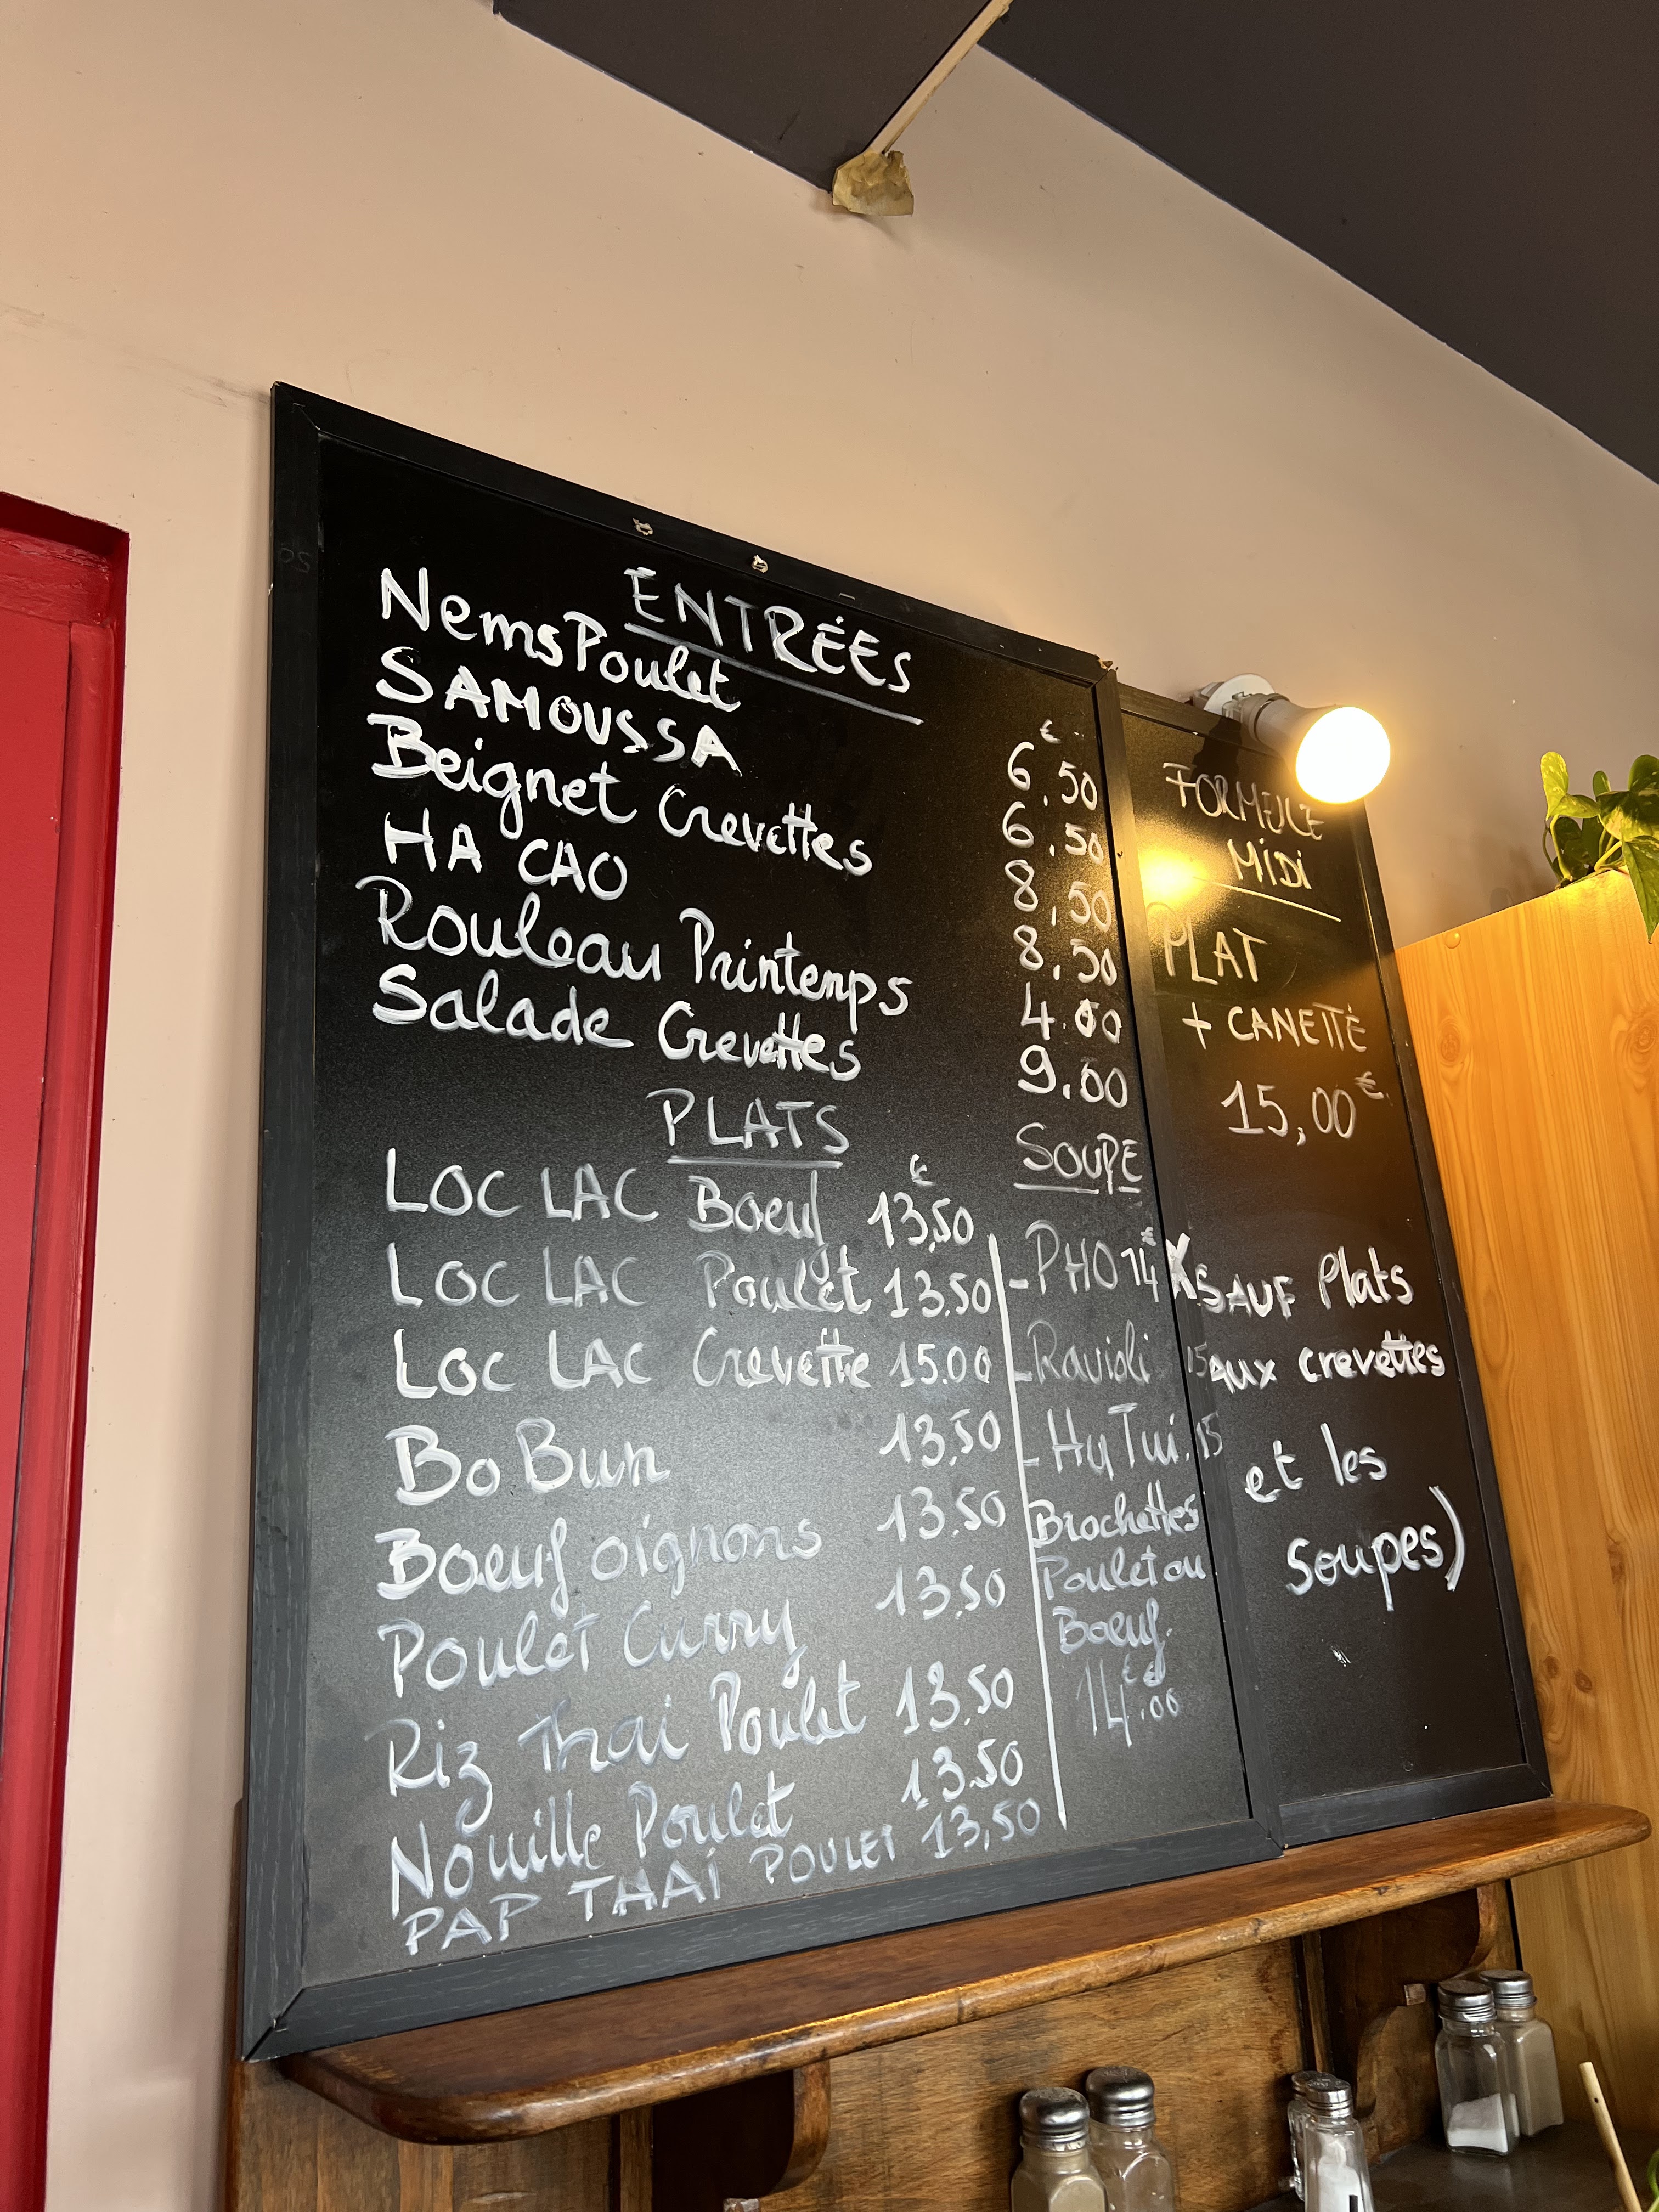 ENTRÉES
€
Nems Poulet 6.50
SAMOUSSA 6.50
Beignet Crevettes 8.50
HA CAO 8.50
Rouleau Printemps 4.00
Salade Crevettes 9.00
PLATS
€
LOC LAC Boeuf 13,50
LOC LAC Poulet 13.50
LOC LAC Crevette 15.00
Bo Bun 13,50
Boeuf oignons 13.50
Poulet Curry 13.50
Riz Thai Poulet 13.50
Nouille Poulet 13.50
PAP THAÏ POULET 13,50
SOUPE
- PHO 14€
- Ravioli 15
- Hu Tui. 15
Brochettes
Poulet ou
Boeuf
€
14.00
FORMULE
MiDi
PLAT
+ CANETTE
15,00€
X SAUF Plats
aux crevettes
et les
soupes)